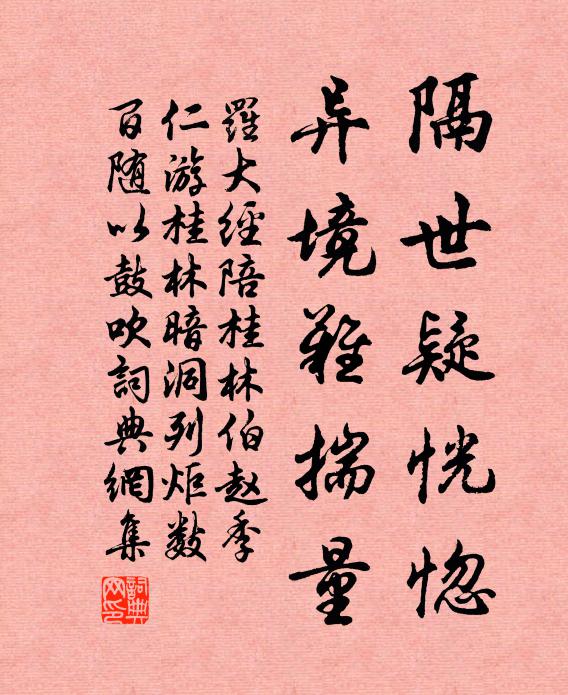 隔世疑恍惚
异境難揣量
羅大經陪桂林伯赵季
仁游桂林暗洞列炬数
百随以鼓吹詞典網集